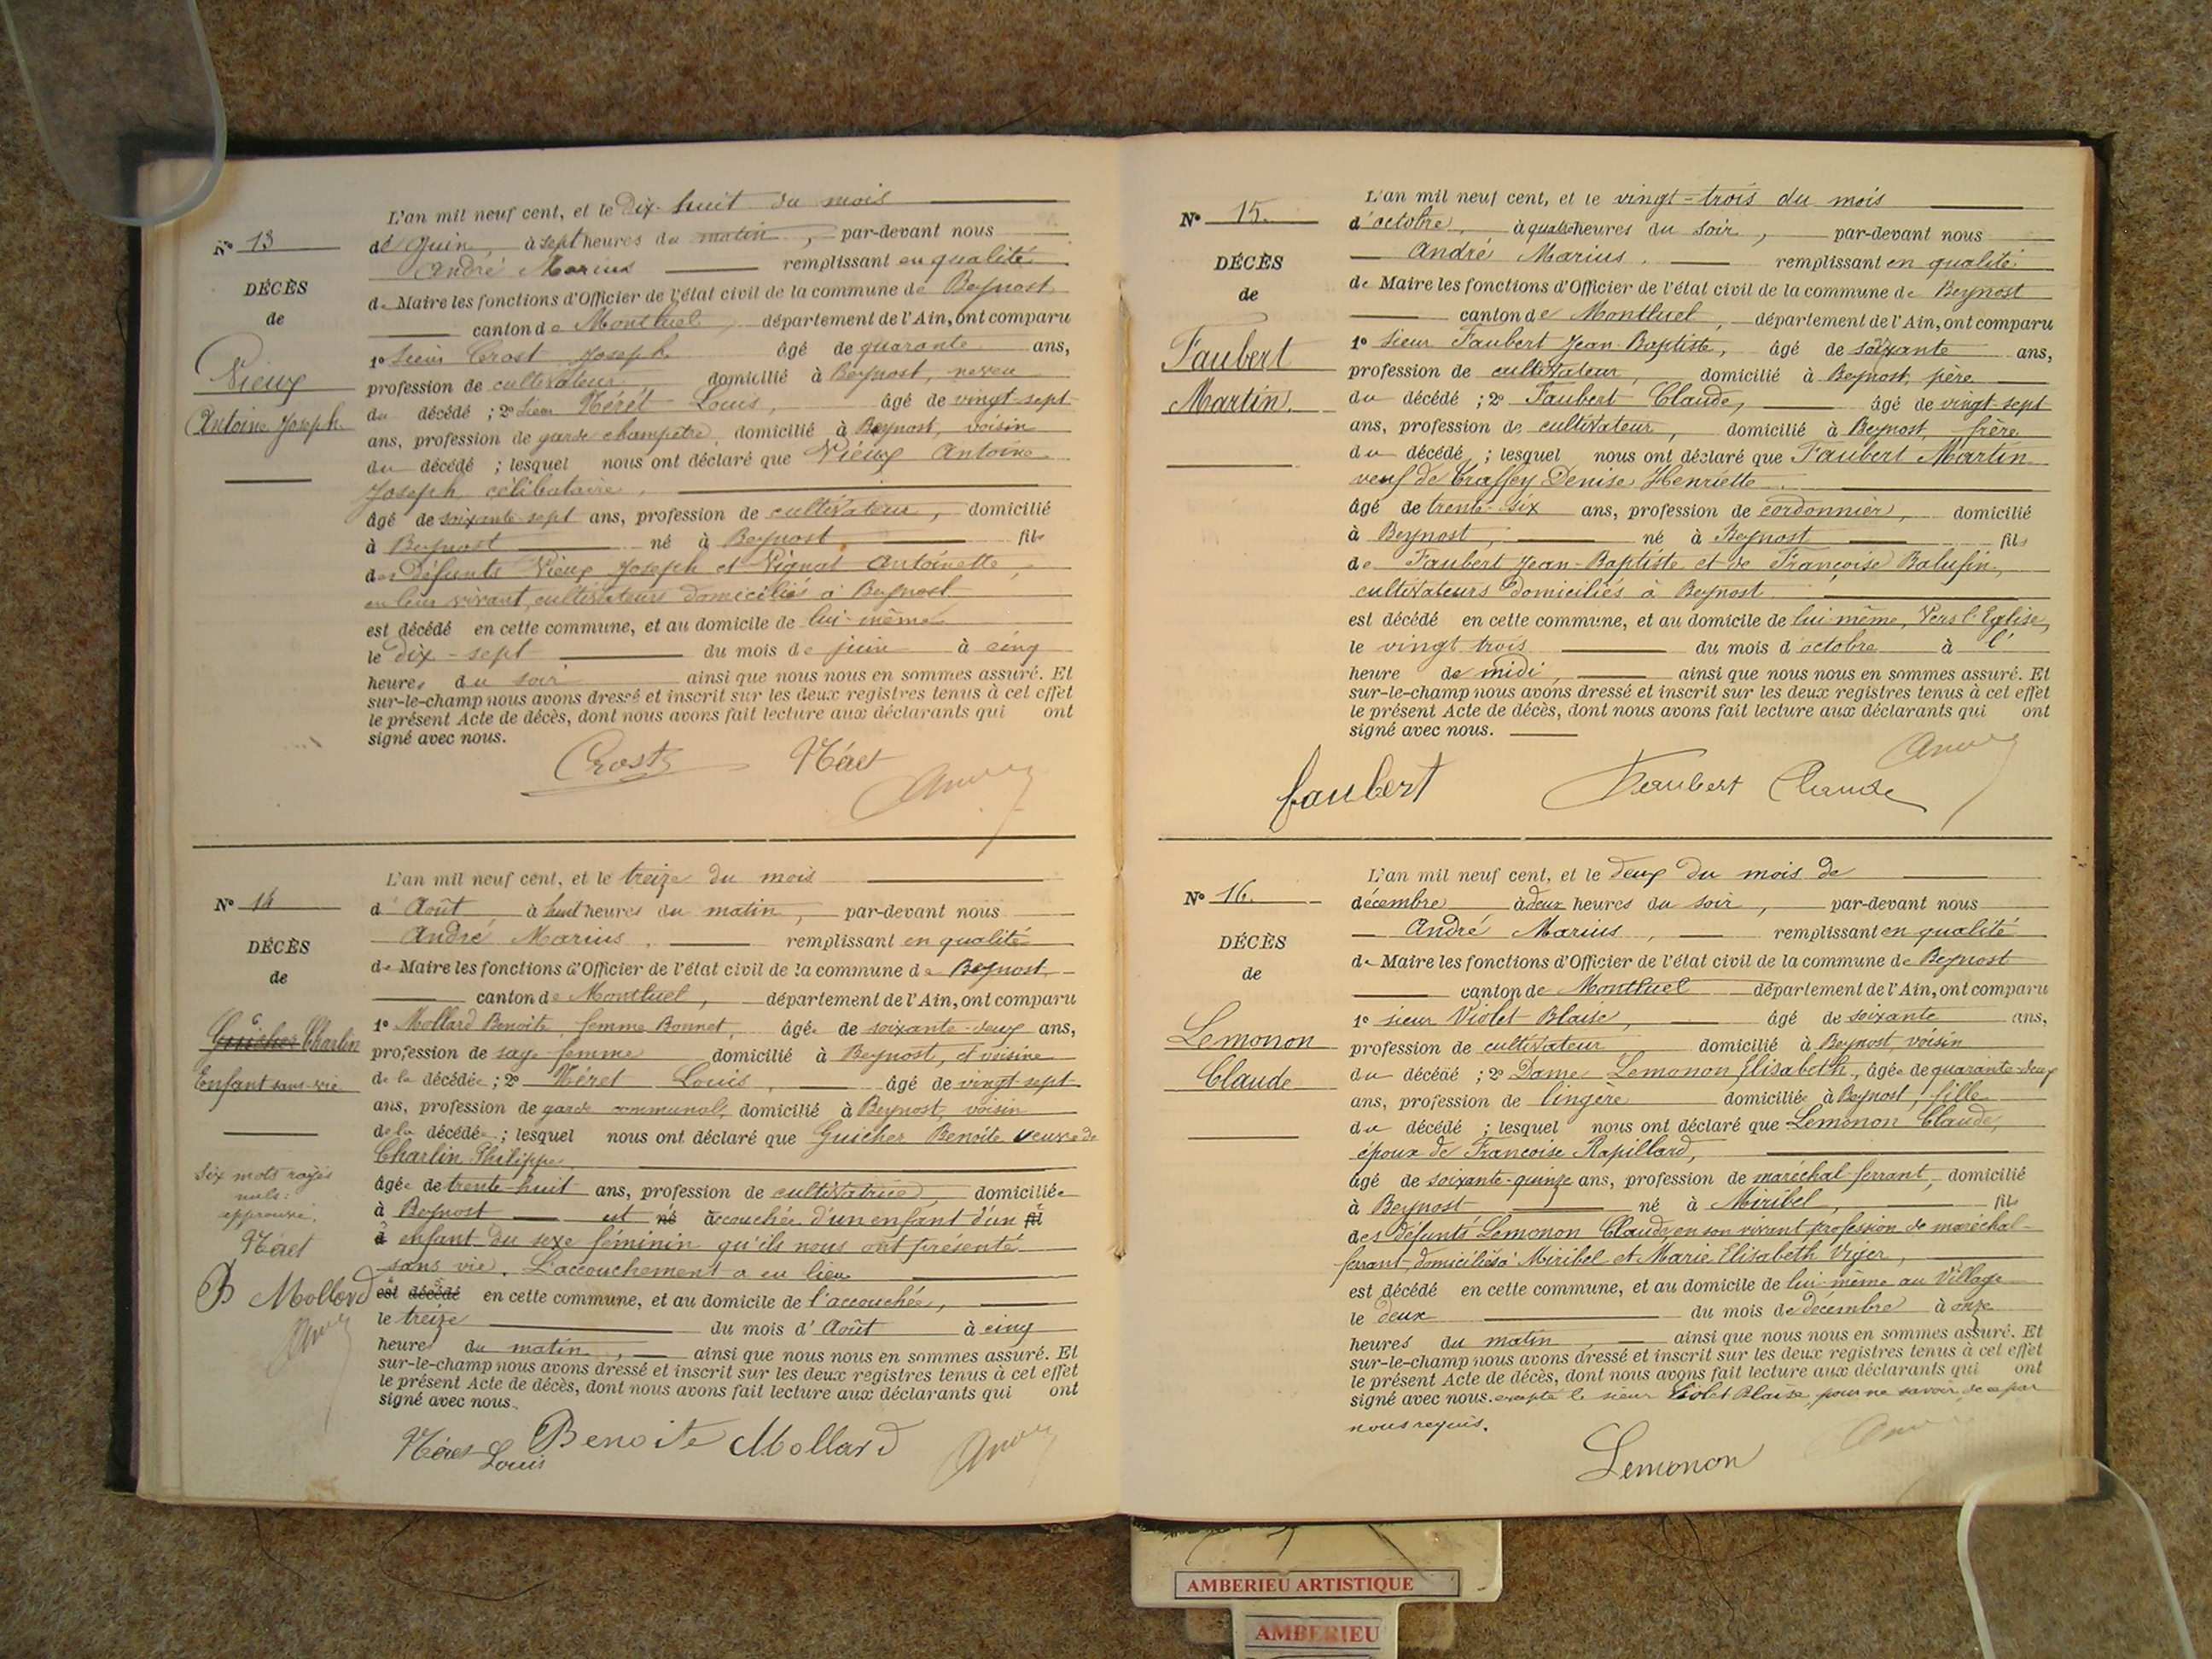 N° 13
DÉCÈS
de
Vieux
Antoine Joseph
L'an mil neuf cent, et le Dix-huit du mois
de Juin, à sept heures du matin, par-devant nous
André Marius remplissant en qualité
de Maire les fonctions d'Officier de l'état civil de la commune de Beynost
canton de Montluel, département de l'Ain, ont comparu
1° Sieur Crost Joseph âgé de quarante ans,
profession de cultivateur domicilié à Beynost, neveu
du décédé ; 2° Sieur Néret Louis, âgé de vingt-sept
ans, profession de garde champêtre, domicilié à Beynost, voisin
du décédé ; lesquel nous ont déclaré que Vieux Antoine
Joseph célibataire,
âgé de soixante-sept ans, profession de cultivateur, domicilié
à Beynost né à Beynost, fils
des défunts Vieux Joseph et Vignat Antoinette,
en leur vivant, cultivateurs domiciliés à Beynost
est décédé en cette commune, et au domicile de lui-même
le dix-sept du mois de juin à cinq
heures du soir ainsi que nous nous en sommes assuré. Et
sur-le-champ nous avons dressé et inscrit sur les deux registres tenus à cet effet
le présent Acte de décès, dont nous avons fait lecture aux déclarants qui ont
signé avec nous.
Crost Néret
N° 14
DÉCÈS
de
Guicher Charlin
Enfant sans vie
Six mots rayés
nuls :
approuvé.
Néret
B Mollard
L'an mil neuf cent, et le treize du mois
d'Août, à huit heures du matin, par-devant nous
André Marius, remplissant en qualité
de Maire les fonctions d'Officier de l'état civil de la commune de Beynost
canton de Montluel, département de l'Ain, ont comparu
1° Mollard Benoite, femme Bonnet, âgée de soixante-deux ans,
profession de sage-femme domicilié à Beynost, et voisine
de la décédée ; 2° Néret Louis, âgé de vingt-sept
ans, profession de garde communal, domicilié à Beynost, voisin
de la décédée ; lesquel nous ont déclaré que Guicher Benoîte veuve de
Charlin Philippe,
âgée de trente-huit ans, profession de cultivatrice, domiciliée
à Beynost est né accouchée d'un enfant d'un fil
à enfant du sexe féminin qu'ils nous ont présenté
sans vie. L'accouchement a eu lieu
est décédé en cette commune, et au domicile de l'accouchée,
le treize du mois d'Août à cinq
heures du matin, ainsi que nous nous en sommes assuré. Et
sur-le-champ nous avons dressé et inscrit sur les deux registres tenus à cet effet
le présent Acte de décès, dont nous avons fait lecture aux déclarants qui ont
signé avec nous.
Néret Louis Benoite Mollard
N° 15.
DÉCÈS
de
Faubert
Martin.
L'an mil neuf cent, et le vingt-trois du mois
d'octobre, à quatre heures du soir, par-devant nous
André Marius, remplissant en qualité
de Maire les fonctions d'Officier de l'état civil de la commune de Beynost
canton de Montluel, département de l'Ain, ont comparu
1° Sieur Faubert Jean-Baptiste, âgé de soixante ans,
profession de cultivateur, domicilié à Beynost, père
du décédé ; 2° Faubert Claude, âgé de vingt-sept
ans, profession de cultivateur, domicilié à Beynost, frère
du décédé ; lesquel nous ont déclaré que Faubert Martin
veuf de Craffey Denise Henriette
âgé de trente-six ans, profession de cordonnier, domicilié
à Beynost, né à Beynost fils
de Faubert Jean-Baptiste et de Françoise Balufin,
cultivateurs domiciliés à Beynost
est décédé en cette commune, et au domicile de lui-même, Vers l'Eglise,
le vingt-trois du mois d'octobre à l'
heure de midi, ainsi que nous nous en sommes assuré. Et
sur-le-champ nous avons dressé et inscrit sur les deux registres tenus à cet effet
le présent Acte de décès, dont nous avons fait lecture aux déclarants qui ont
signé avec nous.
faubert Faubert Claude
N° 16.
DÉCÈS
de
Lemonon
Claude
L'an mil neuf cent, et le deux du mois de
décembre, à deux heures du soir, par-devant nous
André Marius, remplissant en qualité
de Maire les fonctions d'Officier de l'état civil de la commune de Beynost
canton de Montluel département de l'Ain, ont comparu
1° sieur Violet Blaise, âgé de soixante ans,
profession de cultivateur domicilié à Beynost, voisin
du décédé ; 2° Dame Lemonon Elisabeth, âgée de quarante-deux
ans, profession de lingère domiciliée à Beynost, fille
du décédé ; lesquel nous ont déclaré que Lemonon Claude,
époux de Françoise Rapillard,
âgé de soixante-quinze ans, profession de maréchal ferrant, domicilié
à Beynost né à Miribel, fils
des défunts Lemonon Claude en son vivant profession de maréchal-
ferrant domiciliés à Miribel et Marie Elisabeth Vejer,
est décédé en cette commune, et au domicile de lui-même au Village
le deux du mois de décembre à onze
heures du matin, ainsi que nous nous en sommes assuré. Et
sur-le-champ nous avons dressé et inscrit sur les deux registres tenus à cet effet
le présent Acte de décès, dont nous avons fait lecture aux déclarants qui ont
signé avec nous. excepté le sieur Violet Blaise, pour ne savoir, de ce par
nous requis.
Lemonon
AMBERIEU ARTISTIQUE
AMBERIEU